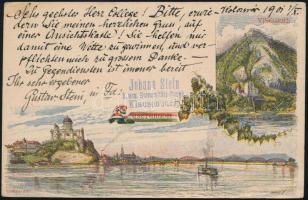 Sehr geehrter Herr College! Bitte, erwie-
dern Sie meinen herzlichen Gruss auf
einer Ansichtskarte! Sie helfen mir
damit eine Wette zu gewinnen, und ver-
pflichten mich zu grossem Danke.—
Zu Gegendiensten ist immer bereit
Ihr sehr ergebener
Gustav Stein
Kolozsvár 1901
Johann Stein
Klausenburg